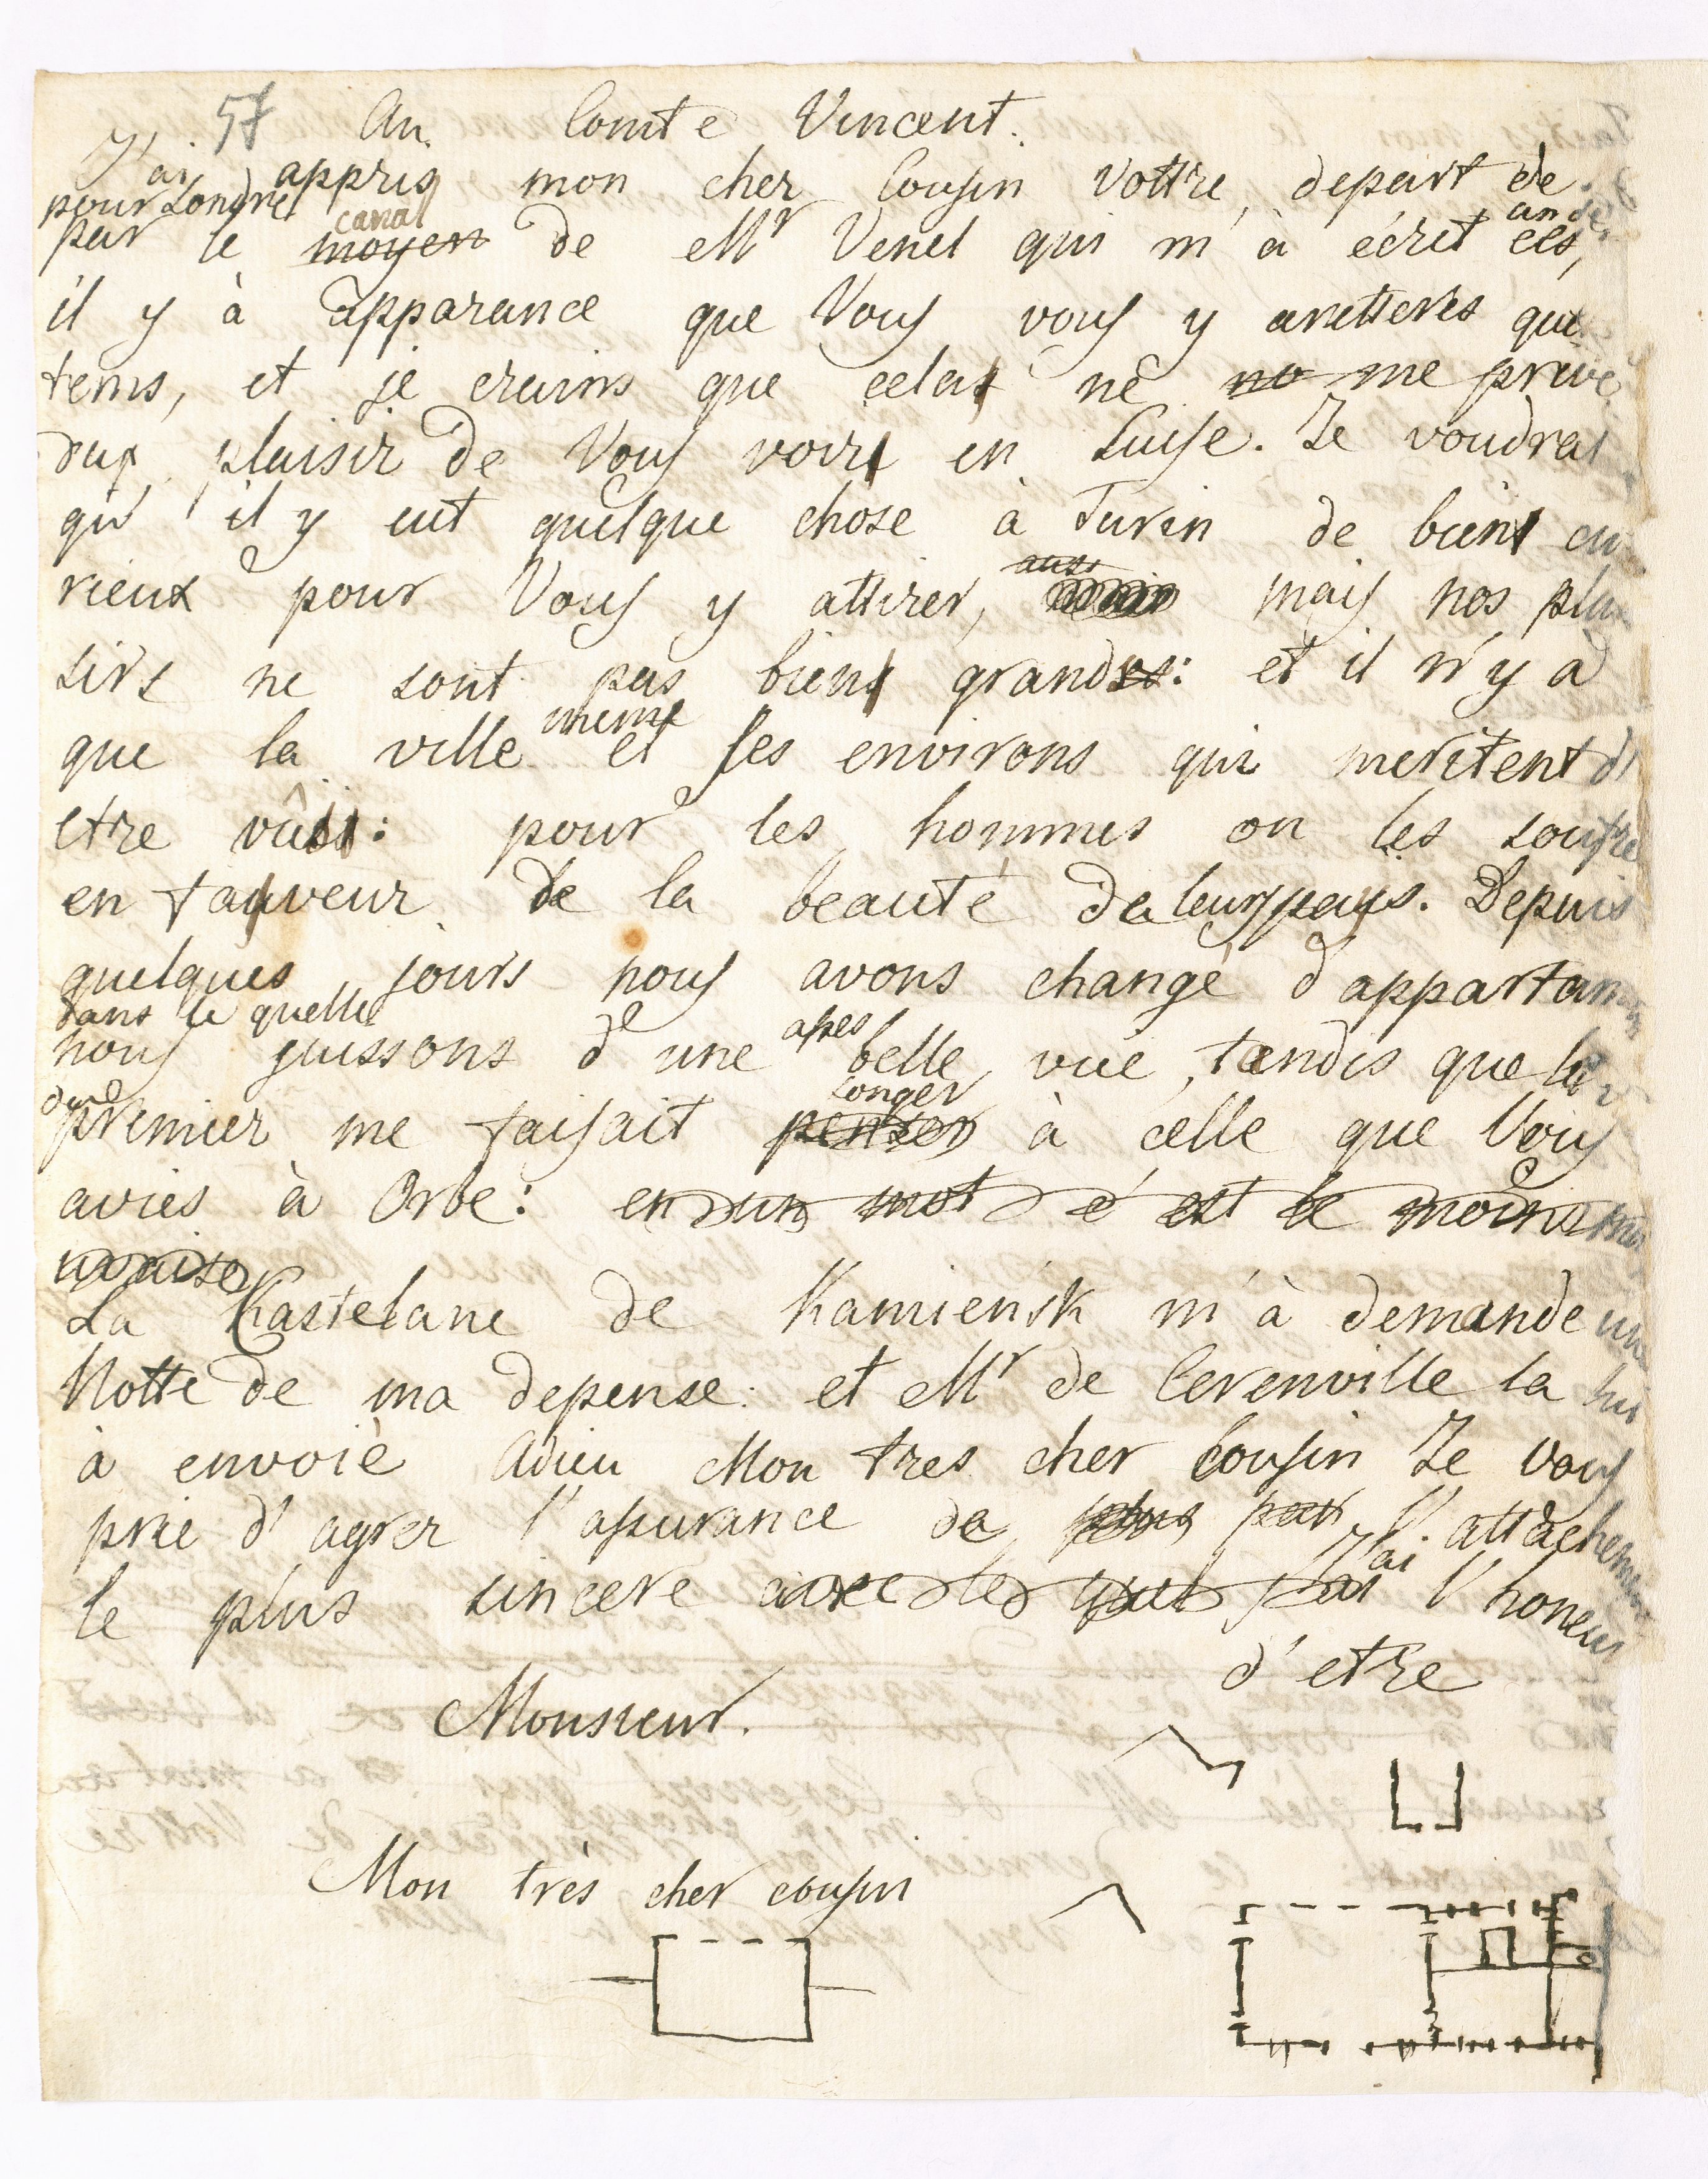 57 Au Comte Vincent.
J'ai appris mon cher Cousin Vottre depart de
pour Londre
par le moyen canal de Mr Venel qui m'à écrit
il y à apparance que Vous vous y aretteres que
tems, et je crains que cela ne me prive
du plaisir de Vous voir en Suise. Je voudrai
qu'il y eut quelque chose à Turin de bien cu
rieux pour Vous y attirer, mais nos plai
sirs ne sont pas bien grands: et il n'y à
que la ville meme et ses environs qui meritent d'
etre vûs: pour les hommes on les soufre
en faveur de la beauté de leur pays. Depuis
quelques jours nous avons changé d'appartam
dans le quelle
nous juissons d'une asses belle vue, tandis que le
premier me faisait penser songer à celle que Vous
avies à Orbe: en un mot c'est le moins mau
vaise
La Kastelane de Kamieńsk m'à demande une
Notte de ma depense: et Mr de Cerenville la lui
à envoié Adieu Mon tres cher Cousin Je vous
prie d'agrer l'assurance de plus par l'attachement
le plus sincere avec le quel J'ai l'honeur
d'etre
Monsieur.
Mon très cher cousin